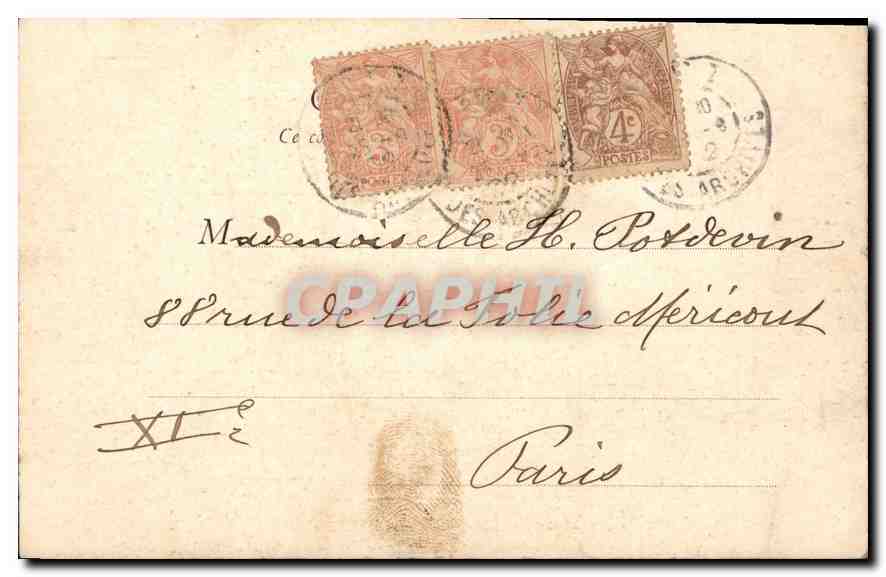 3c POSTES
3c POSTES
4c POSTES
Ce co
DES ARCHIVES
Mademoiselle H. Potdevin
CPAPHIL
88 rue de la Folie Méricourt
XIe
Paris